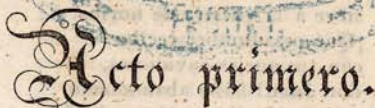 Acto primero.